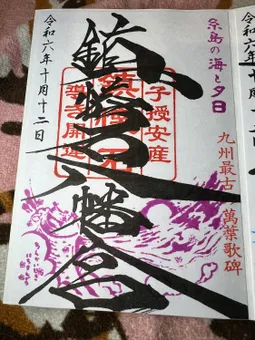 糸島の海と夕日
九州最古 萬葉歌碑
子授安産
鎮懐石
導き開運
鎮懐石八幡宮
令和六年十月十二日